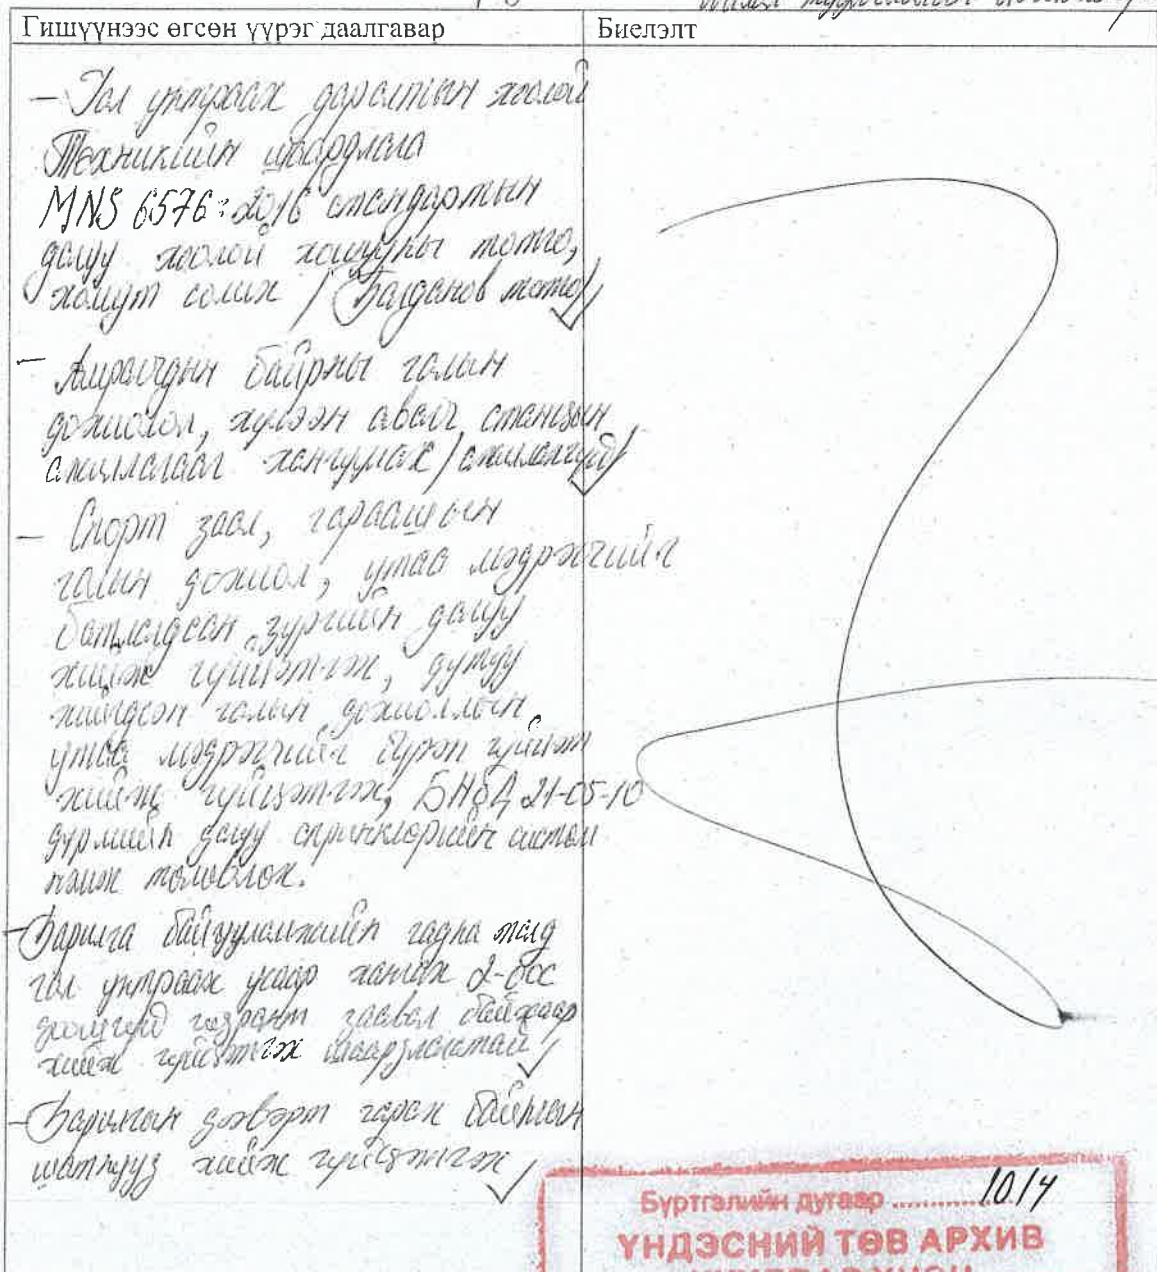 Гишүүнээс өгсөн үүрэг даалгавар
Биелэлт
– Гал унтраах даралтын хоолой
Техникийн шаардлага
MNS 6576:2016 стандартын
дагуу хоолой хошууны толгой,
хомут солих / Багданов толгой/
– Амрагчдын байрны галын
дохиолол, хүлээн авагч станцын
ажиллагааг хангуулах /ажиллахгүй/
– Спорт заал, гараашын
галын дохиол, утаа мэдрэгчийг
батлагдсан зургийн дагуу
хийж гүйцэтгэж, дутуу
хийгдсэн галын дохиоллын,
утаа мэдрэгчийг бүрэн гүйцэт
хийж гүйцэтгэж, БНбД 21-05-10
дүрмийн дагуу спринклерийн систем
нэмж төлөвлөх.
– Барилга байгууламжийн гадна талд
гал унтраах усаар хангах 2-оос
доошгүй гидрант заавал байхаар
хийж гүйцэтгэх шаардлагатай
– Барилгын дээвэрт гарах байрлалын
шатнууд хийж гүйцэтгэх
Бүртгэлийн дугаар ........... 10/4
ҮНДЭСНИЙ ТӨВ АРХИВ